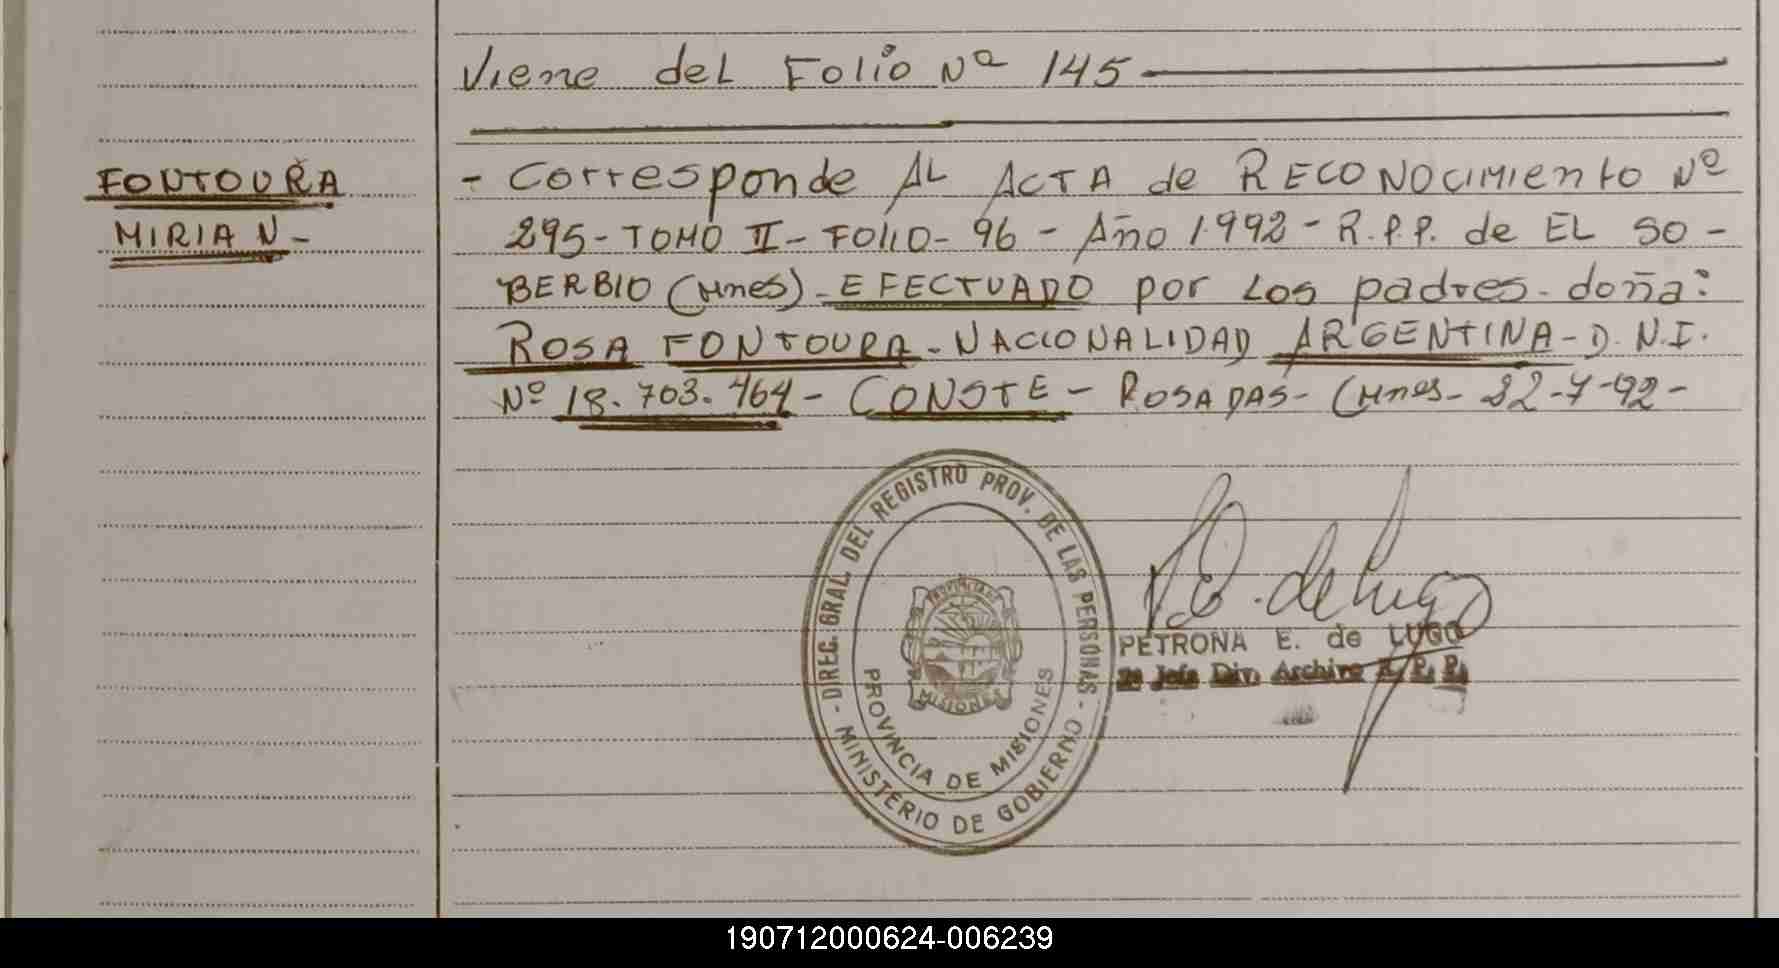 Viene del Folio Nº 145
FONTOURA
MIRIAN-
- Corresponde AL ACTA de RECONOCIMIENTO Nº
295-TOMO II-FOLIO-96-Año 1992-R.P.P. de EL SO-
BERBIO (Mnes)-EFECTUADO por Los padres-doña:
ROSA FONTOURA-NACIONALIDAD ARGENTINA-D.N.I.
Nº 18.703.464-CONSTE-ROSADAS-(Mnes-22-7-92-
- DREC. GRAL. DEL REGISTRO PROV. DE LAS PERSONAS -
MINISTERIO DE GOBIERNO
PROVINCIA DE MISIONES
PROVINCIA DE
MISIONES
P.E. de Lugo
PETRONA E. de LUGO
2º Jefe Div. Archivo R. P. P.
190712000624-006239